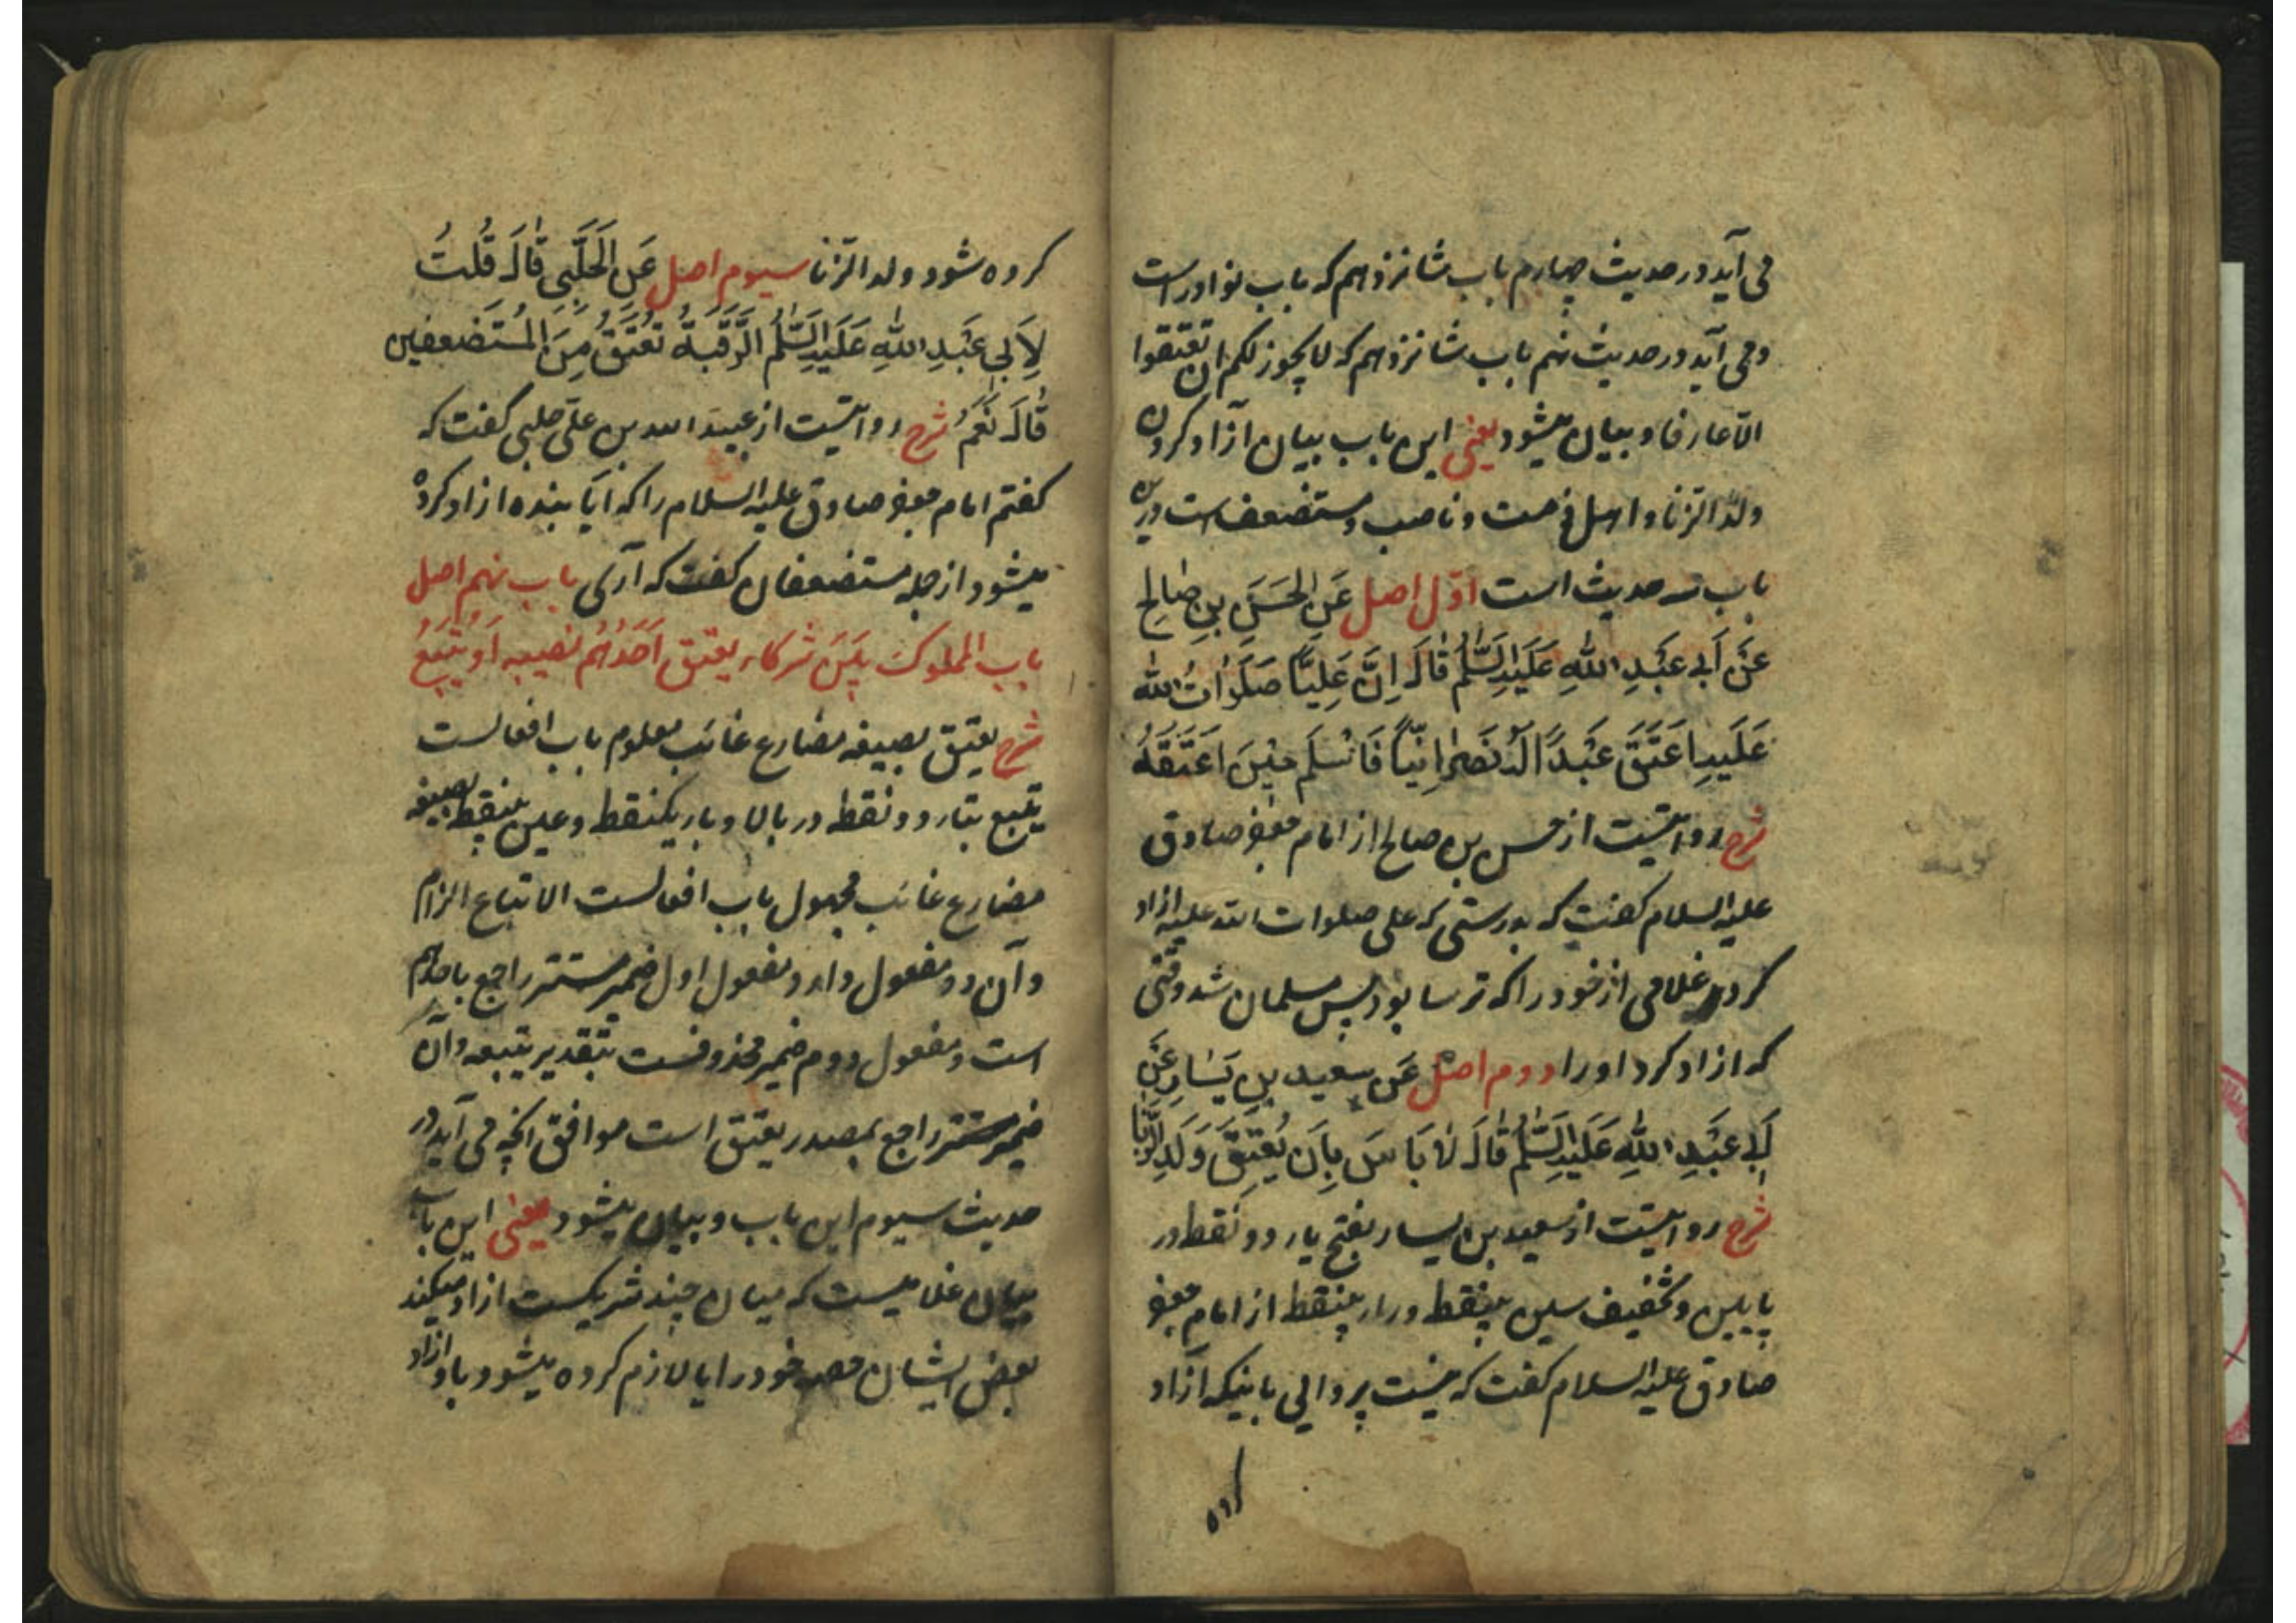 می آید در حدیث چهارم باب شانزدهم که باب نوادر است
و می آید در حدیث نهم باب شانزدهم که لا یجوز لکم ان تعتقوا
الا عارفا و بیان میشود یعنی این باب بیان آزاد کردن
ولد الزنا و اهل ذمت و ناصب و مستضعف است درین
باب سه حدیث است اوّل اصل عَنِ الحَسَنِ بنِ صٰالِحٍ
عَنْ اَبی عَبْدِ اللهِ عَلَیْهِ السَّلٰمُ قٰالَ اِنَّ عَلِیّاً صَلَوٰاتُ الله
عَلَیهِ اَعتَقَ عَبْداً لَهُ نَصْرٰانِیّاً فَاَسْلَمَ حیْنَ اَعتَقَهُ
شرح روایتست از حسن بن صالح از امام جعفر صادق
علیه السلام گفت که بدرستی که علی صلوات الله علیه ازاد
کرد غلامی از خود را که ترسا بود پس مسلمان شد وقتی
که ازاد کرد او را دوم اصل عَن سعیدِ بنِ یَسٰارٍ عَنْ
اَبی عَبْدِ اللهِ عَلَیْهِ السَّلٰمُ قٰالَ لاٰ بَاسَ بِاَن یُعْتَقَ وَلَدُ الزِّنٰا
شرح روایتست از سعید بن یسار بفتح یاء دو نقطه در
پایین و تخفیف سین بینقطه و راء بینقطه از امام جعفر
صادق علیه السلام گفت که نیست پروائی باینکه آزاد
کرده
کرده شود ولد الزنا سیوم اصل عَنِ الحَلَبِیِّ قٰالَ قُلتُ
لِاَبی عَبْدِ اللهِ عَلَیْهِ السَّلٰمُ الرَّقَبَةُ تُعْتَقُ مِنَ المُسْتَضعفین
قٰالَ نَعَمْ شرح روایتست از عبید الله بن علی حلبی گفت که
گفتم امام جعفر صادق علیه السلام را که ایا بنده ازاد کرده
میشود از جمله مستضعفان گفت که آری باب نهم اصل
باب المملوک بَیْنَ شرکاء یعتق اَحَدُهُم نصیبه اَو یُتْبَعُ
شرح یعتق بصیغه مضارع غائب معلوم باب افعالست
یتبع بتاء دو نقطه در بالا و باء یکنقطه و عین بینقطه بصیغه
مضارع غائب مجهول باب افعالست الاتباع الزام
و آن دو مفعول دارد و مفعول اول ضمیر مستتر راجع باحدهم
است و مفعول دوم ضمیر محذوفست بتقدیر یتبعه و آن
ضمیر مستتر راجع بمصدر یعتق است موافق آنچه می آید در
حدیث سیوم این باب و بیان میشود یعنی این باب
بیان غلامیست که میان چند شریکست ازاد میکند
بعض ایشان حصه خود را ایا لازم کرده میشود باو ازاد